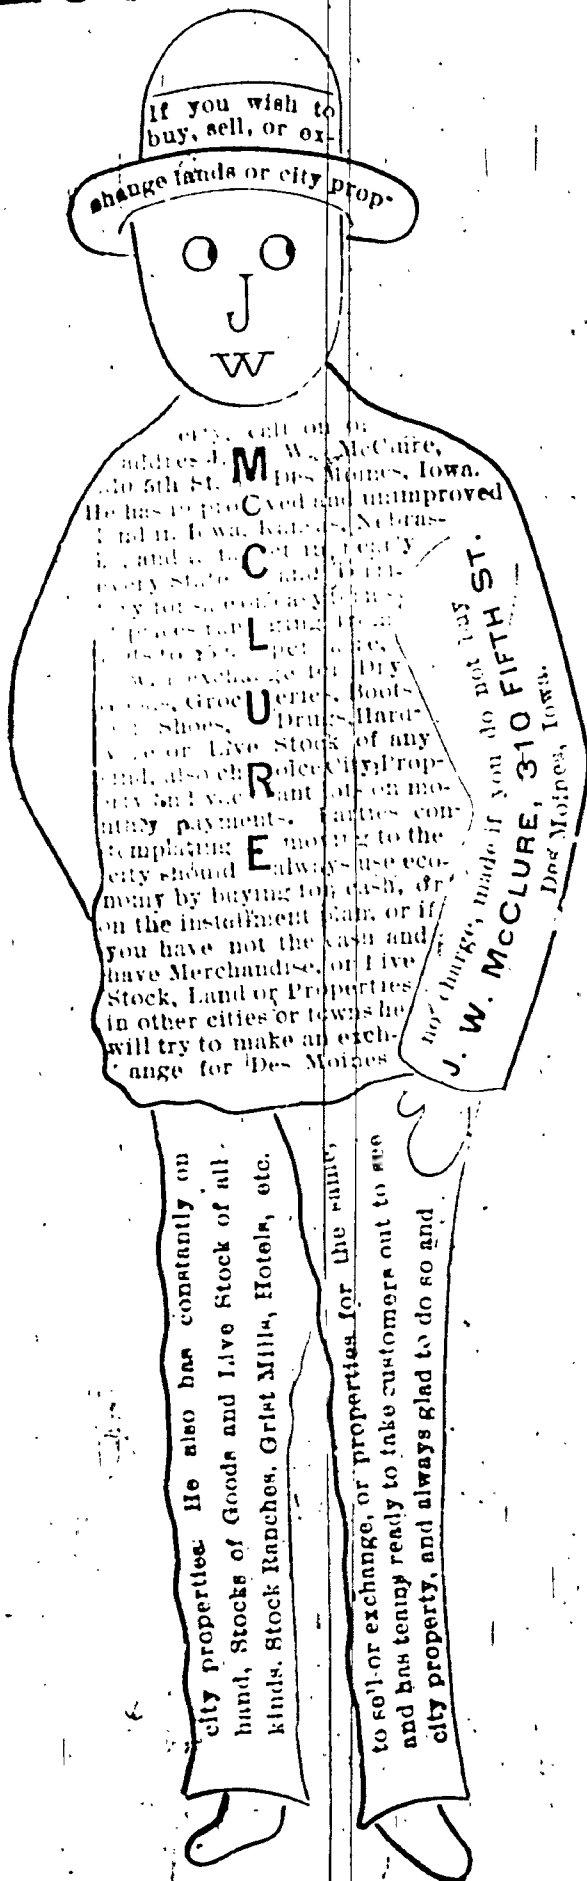 If you wish to
buy, sell, or ex-
change lands or city prop-
J
W
erty, call on or
address J. W. McClure,
310 5th St. Des Moines, Iowa.
He has improved and unimproved
land in Iowa, Kansas, Nebras-
and in nearly
every State and Terri-
tory for
prices ranging from
to per acre,
exchange for Dry
Groceries, Boots
Shoes, Drugs, Hard-
or Live Stock of any
kind, also choice City Prop-
erty and vacant lots on mo-
nthly payments. Parties con-
templating moving to the
city should always use eco-
nomy by buying for cash, or
on the installment plan, or if
you have not the cash and
have Merchandise, or Live
Stock, Land or Properties
in other cities or towns he
will try to make an exch-
ange for Des Moines
MCCLURE
city properties. He also has constantly on
hand, Stocks of Goods and Live Stock of all
kinds. Stock Ranches, Grist Mills, Hotels, etc.
to sell or exchange, or properties for the same,
and has teams ready to take customers out to see
city property, and always glad to do so and
no charge, made if you do not buy
J. W. McCLURE, 310 FIFTH ST.
Des Moines, Iowa.